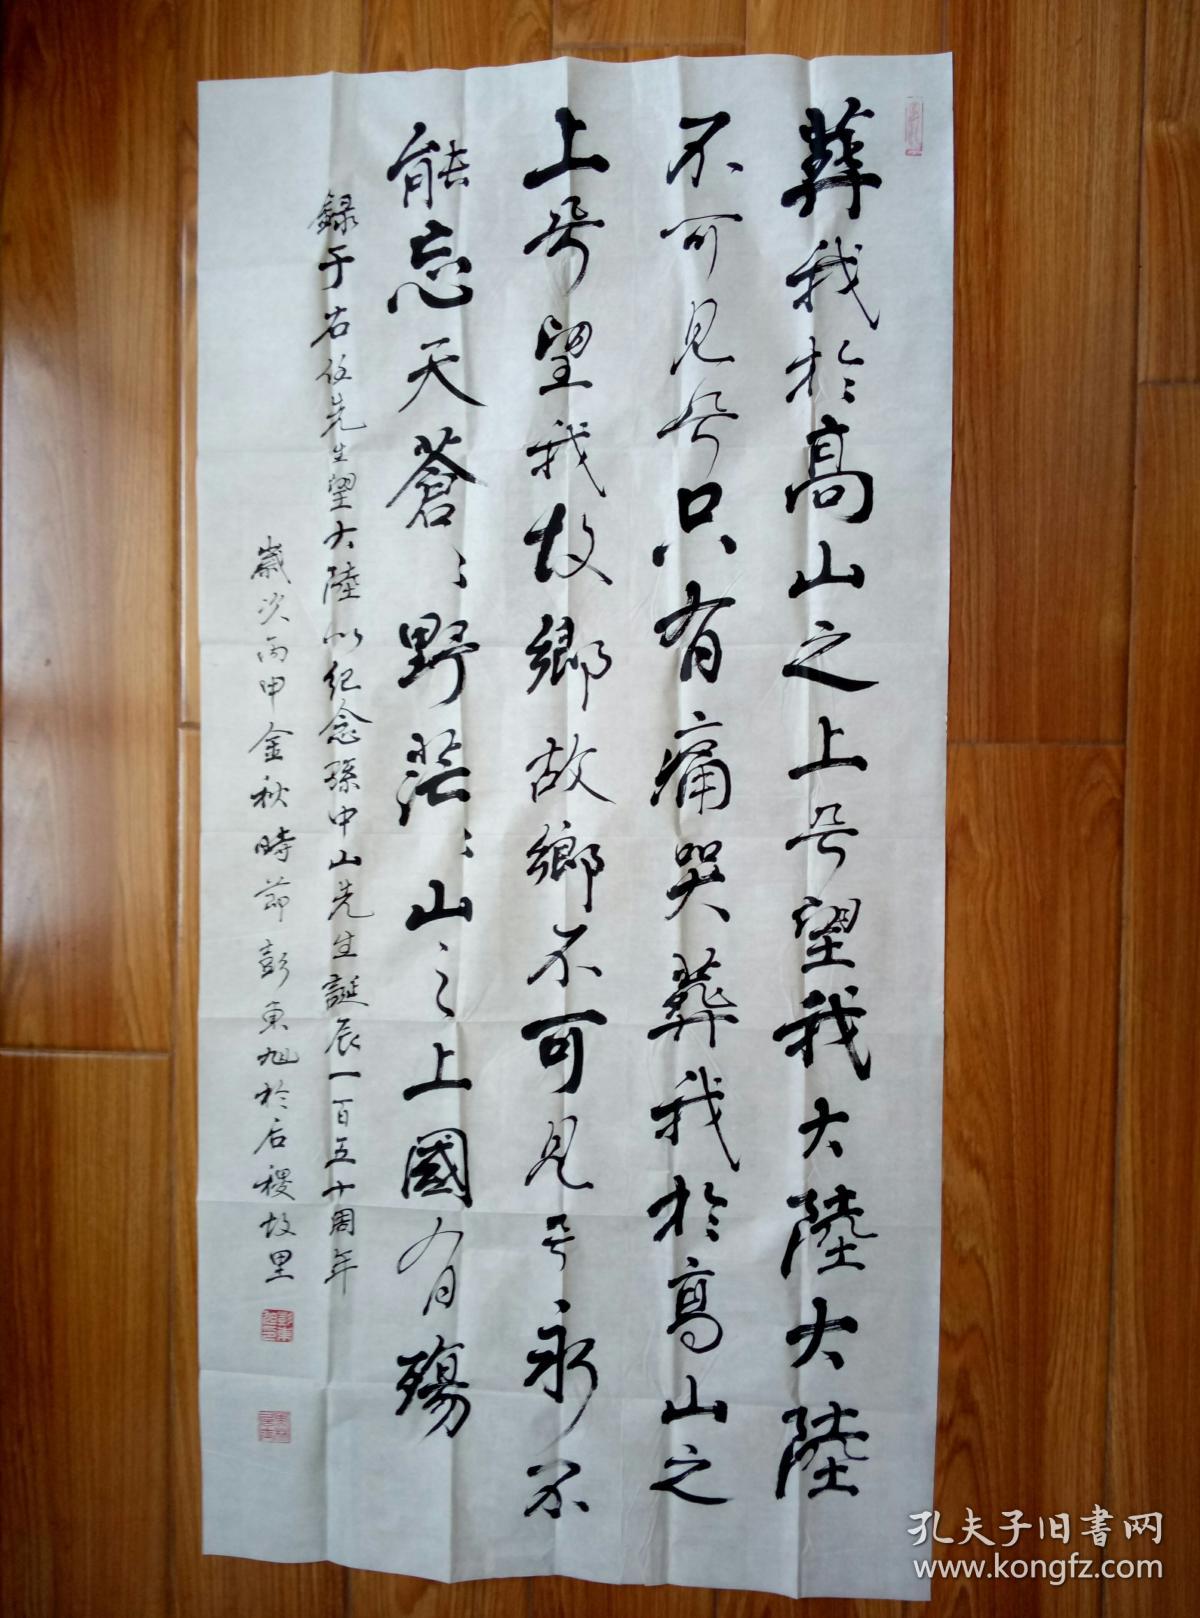 葬我於高山之上兮望我大陸大陸
不可見兮只有痛哭葬我於高山之
上兮望我故鄉故鄉不可見兮永不
能忘天蒼〻野茫〻山之上國有殤
錄于右任先生望大陸以紀念孫中山先生誕辰一百五十周年
歲次丙申金秋時節彭東旭於后稷故里
孔夫子旧书网
www.kongfz.com